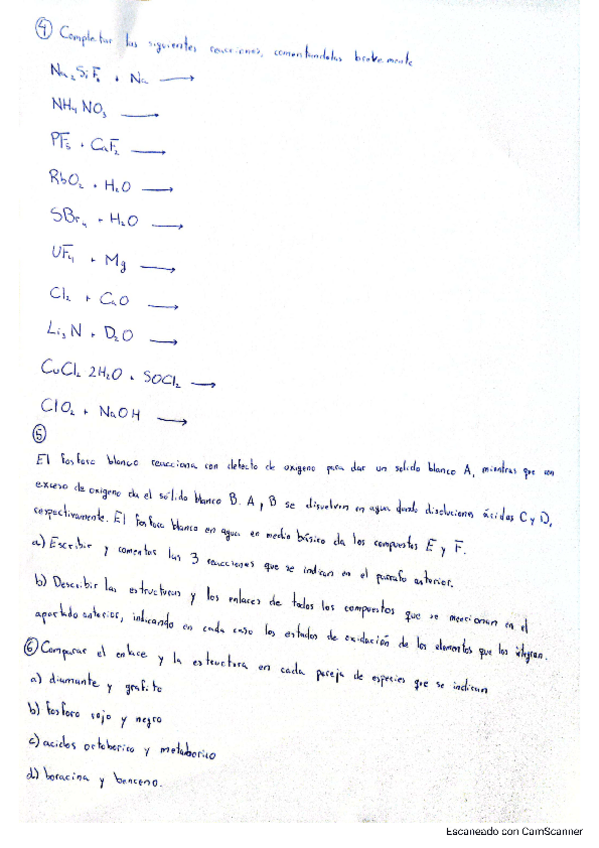 ④ Completar las siguientes reacciones, comentandolas brevemente
Na₂SiF₆ + Na ⟶
NH₄NO₃ ⟶
PF₅ + CaF₂ ⟶
RbO₂ + H₂O ⟶
SBr₄ + H₂O ⟶
UF₄ + Mg ⟶
Cl₂ + CaO ⟶
Li₃N + D₂O ⟶
CuCl₂ 2H₂O + SOCl₂ ⟶
ClO₂ + NaOH ⟶
⑤
El fosforo blanco reacciona con defecto de oxigeno para dar un solido blanco A, mientras que con
exceso de oxigeno da el sólido blanco B. A y B se disuelven en agua dando disoluciones ácidas C y D,
respectivamente. El fosforo blanco en agua en medio básico da los compuestos E y F.
a) Escribir y comentar las 3 reacciones que se indican en el parrafo anterior.
b) Describir las estructuras y los enlaces de todos los compuestos que se mencionan en el
apartado anterior, indicando en cada caso los estados de oxidación de los elementos que los integran.
⑥ Comparar el enlace y la estructura en cada pareja de especies que se indican
a) diamante y grafito
b) fosforo rojo y negro
c) acidos ortoborico y metaborico
d) boracina y benceno.
Escaneado con CamScanner